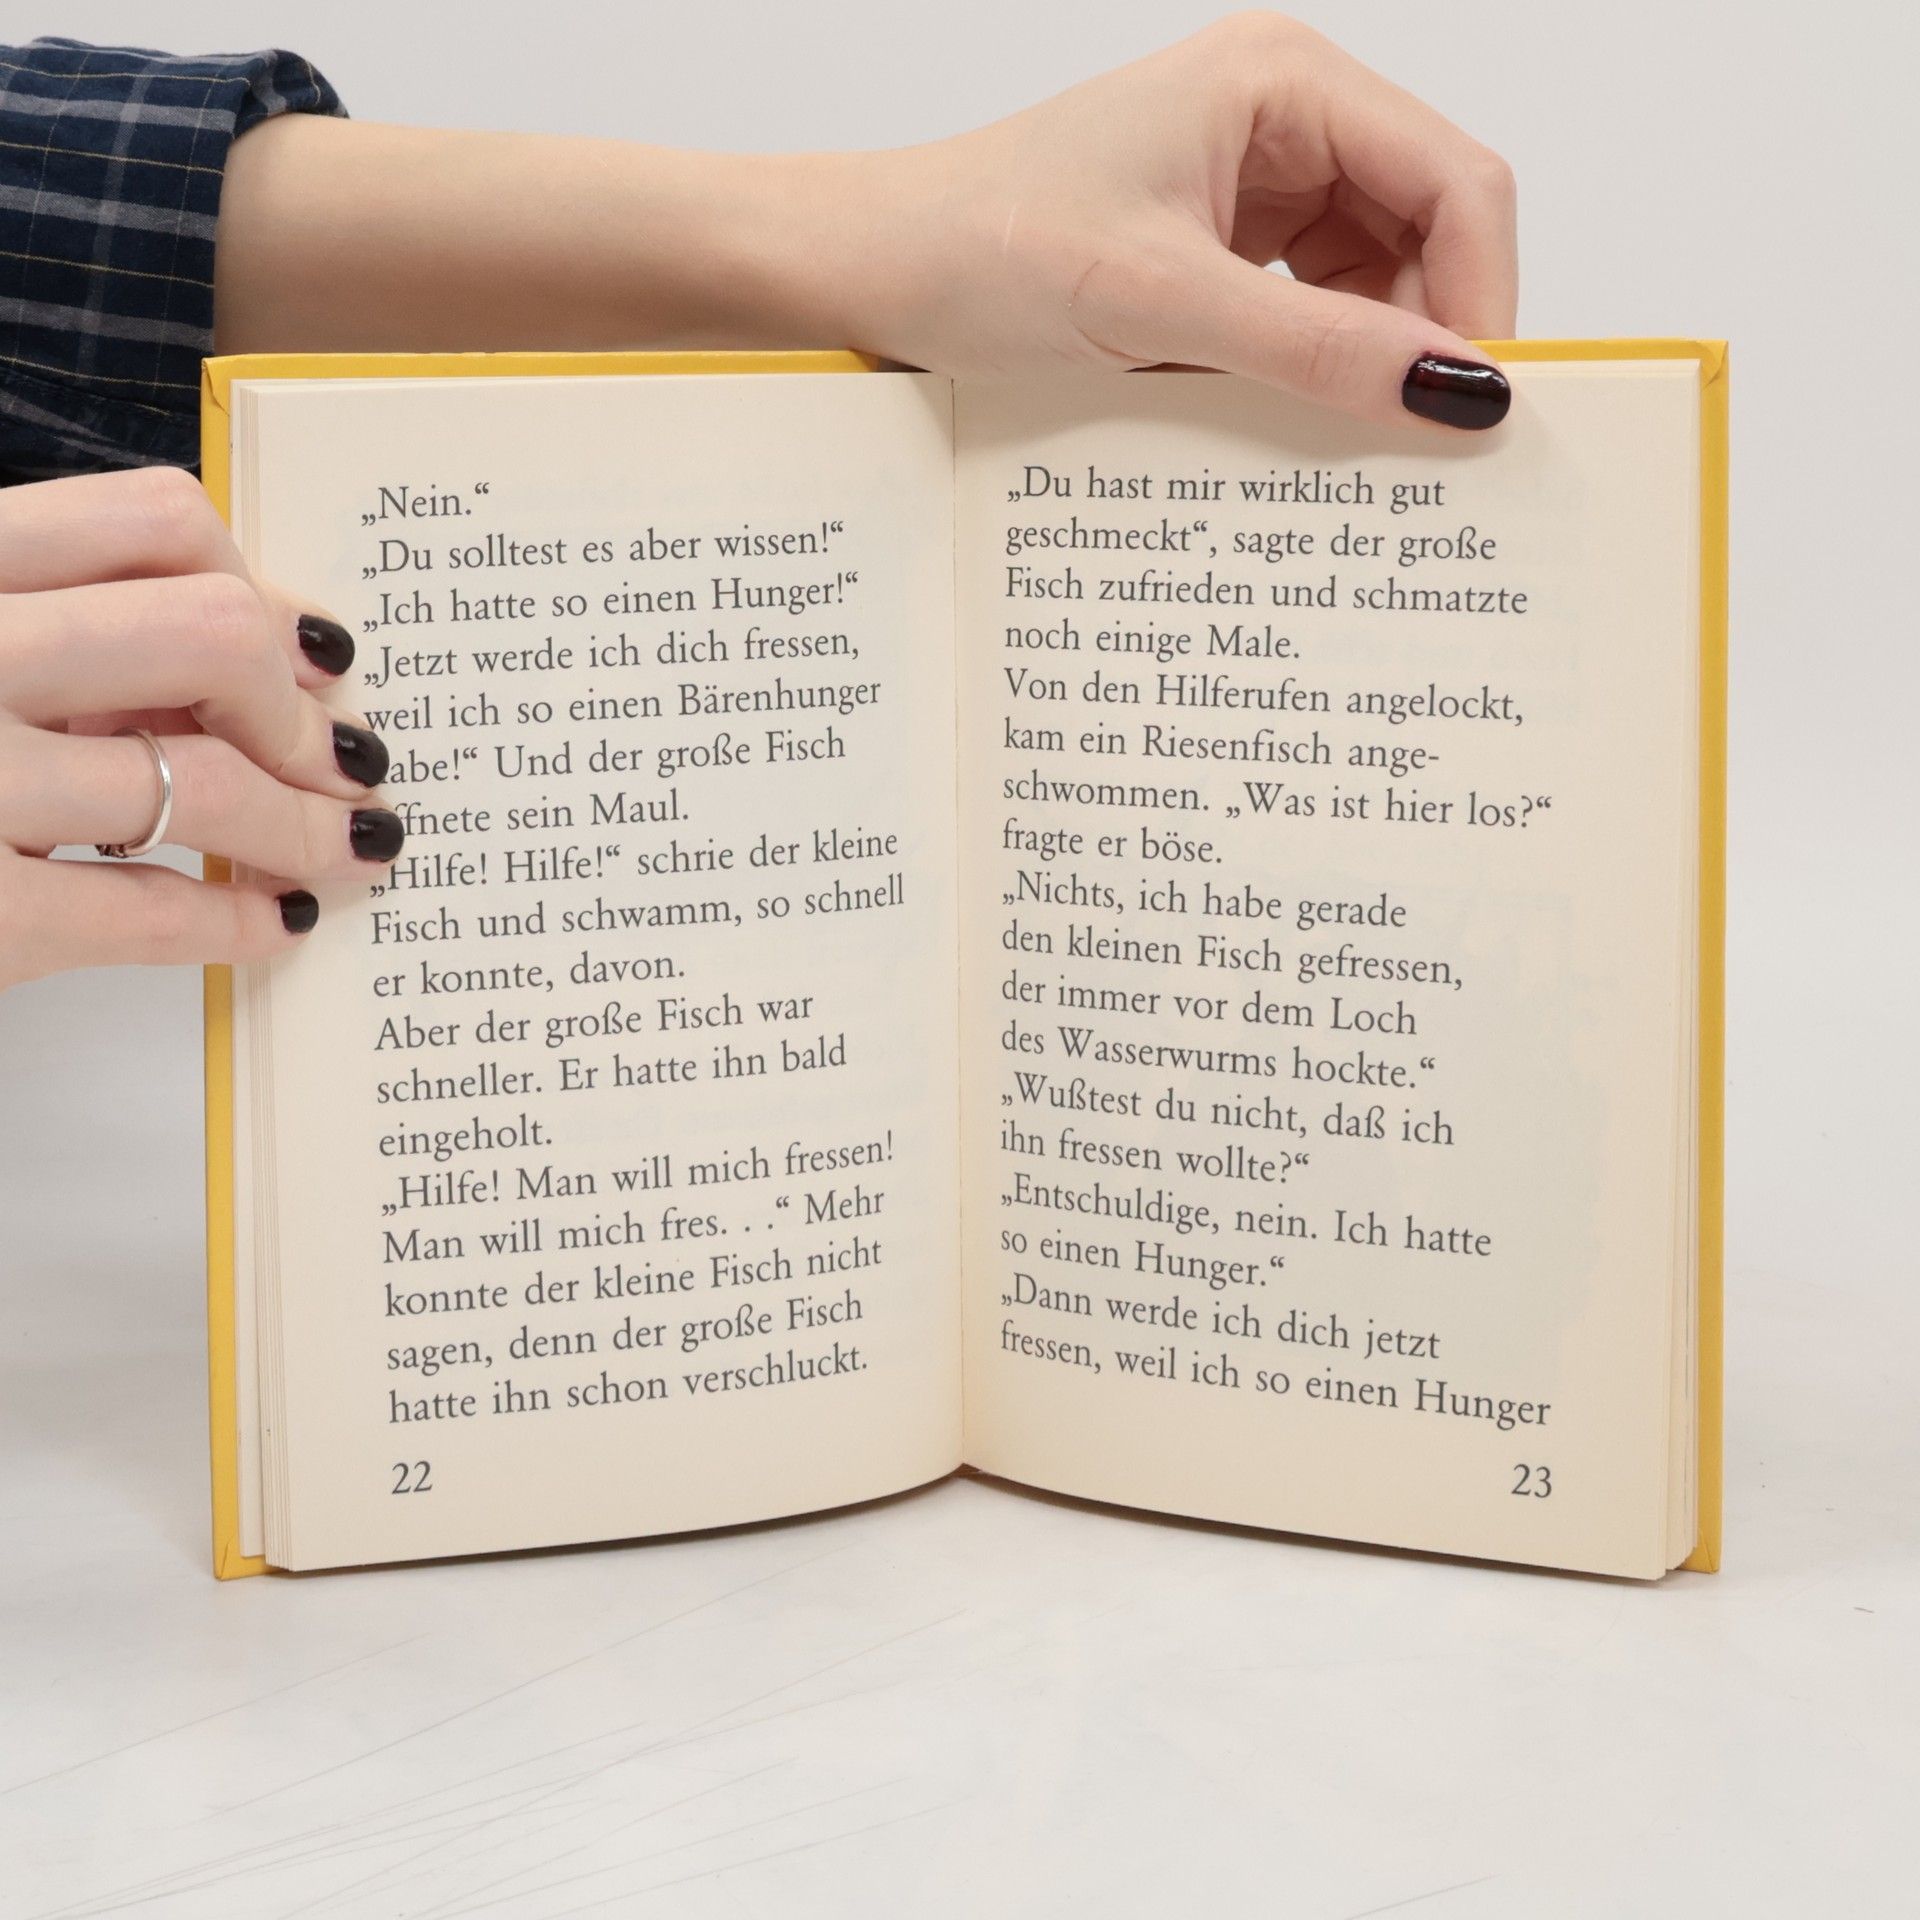 „Nein.“
„Du solltest es aber wissen!“
„Ich hatte so einen Hunger!“
„Jetzt werde ich dich fressen,
weil ich so einen Bärenhunger
abe!“ Und der große Fisch
ffnete sein Maul.
„Hilfe! Hilfe!“ schrie der kleine
Fisch und schwamm, so schnell
er konnte, davon.
Aber der große Fisch war
schneller. Er hatte ihn bald
eingeholt.
„Hilfe! Man will mich fressen!
Man will mich fres. . .“ Mehr
konnte der kleine Fisch nicht
sagen, denn der große Fisch
hatte ihn schon verschluckt.
22
„Du hast mir wirklich gut
geschmeckt“, sagte der große
Fisch zufrieden und schmatzte
noch einige Male.
Von den Hilferufen angelockt,
kam ein Riesenfisch ange-
schwommen. „Was ist hier los?“
fragte er böse.
„Nichts, ich habe gerade
den kleinen Fisch gefressen,
der immer vor dem Loch
des Wasserwurms hockte.“
„Wußtest du nicht, daß ich
ihn fressen wollte?“
„Entschuldige, nein. Ich hatte
so einen Hunger.“
„Dann werde ich dich jetzt
fressen, weil ich so einen Hunger
23